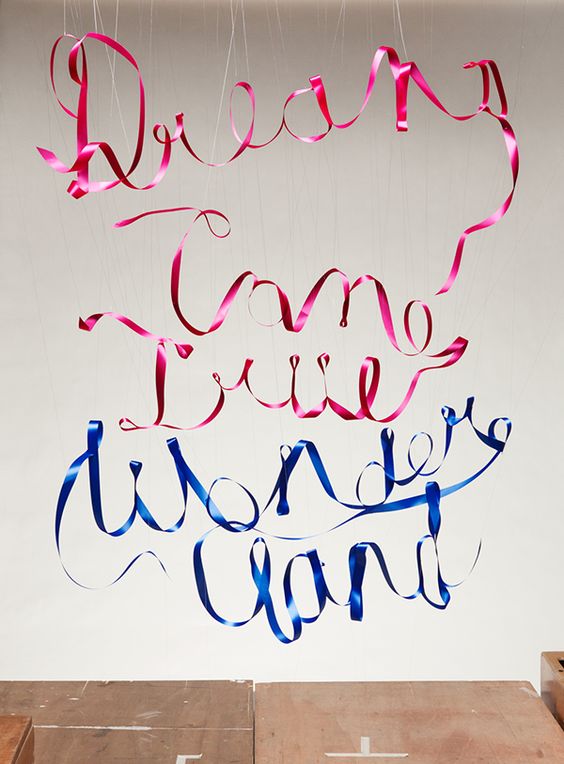 Dreams
Come
True
Wonder
land